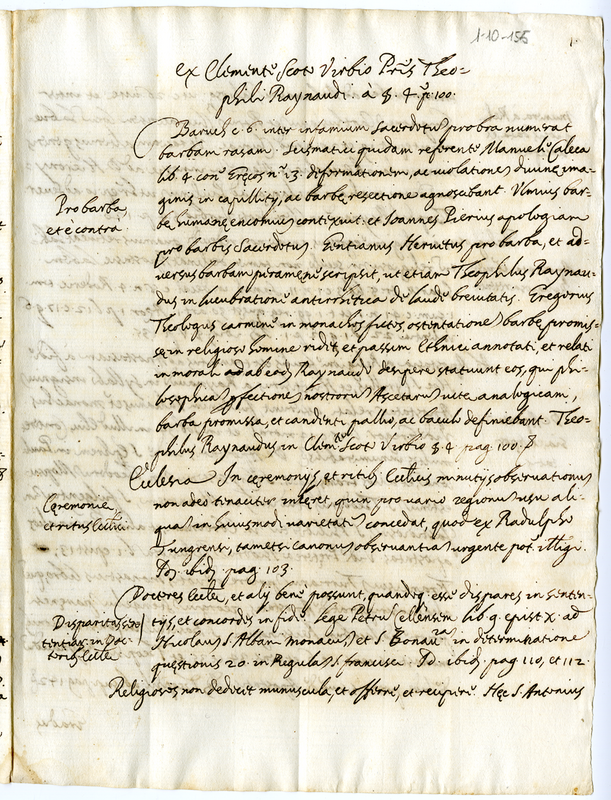 1-10-155
1.
ex Clemente Scoto Virbio Pris Theo=
phili Raynaudi. à §. 4. p. 100.
Baruch c. 6. inter infamium Sacerdotū probra numerat
barbam rasam. Scismatici quidam referente Manuele Caleca
lib. 4. con. Gręcos nº 13. deformationem, ac violationē divinę ima=
ginis in capillitij, ac barbę resectione agnoscebant. Ulmius bar=
bę humanę encomiū contexuit. et Ioannes Pierius apologiam
pro barbis Sacerdotū. Gentianus Hervetus pro barba, et ad=
versus barbam scripsit, ut etiam Theophilus Raynau=
dus in lucubratione de laude brevitatis. Gregorius
Theologus carmine in monachos fictos ostentationē barbę promis=
sę in religioso homine ridet, et passim Ethnici annotati, et relati
in morali ad ab eod. Raynaudo desipere statuunt eos, qui phi=
losophicā pfectionē nostrorū Ascetarū vitę analogicam,
barba promissa, et candenti pallio, ac baculo definiebant. Theo=
philus Raynaudus in Clem.te Scoto Virbio §. 4. pag. 100. §
Pro barba,
et e contra.
Ecclesia In ceremonijs, et ritibꝫ Ecclicis minutijs observationū
non adeo tenaciter inhęret, quin pro vario regionū usu ali=
quā in huiusmodi varietatē concedat, quod ex Radulpho
Tungrensi, tametsi canonū observantiā urgente pot. illigi.
Id. ibid. pag. 103.
Ceremonię
et ritus Ecclici.
Doctores Eccleę, et alij bene possunt, quandoq esse dispares in senten=
tijs, et concordes in fide. Lege Petrū Cellensem lib. 9. epist. x. ad
Nicolaū S. Albani monacū et S. Bonau.ra in determinatione
quęstionis 20. in Regulā S. francisci. Id. ibid. pag. 110, et 112.
Disparitas sen=
tentiar. in Doc=
torib. Eccleę
Religiosos non dedecet munuscula, et offerre, et recipere. Hęc S. Antonius